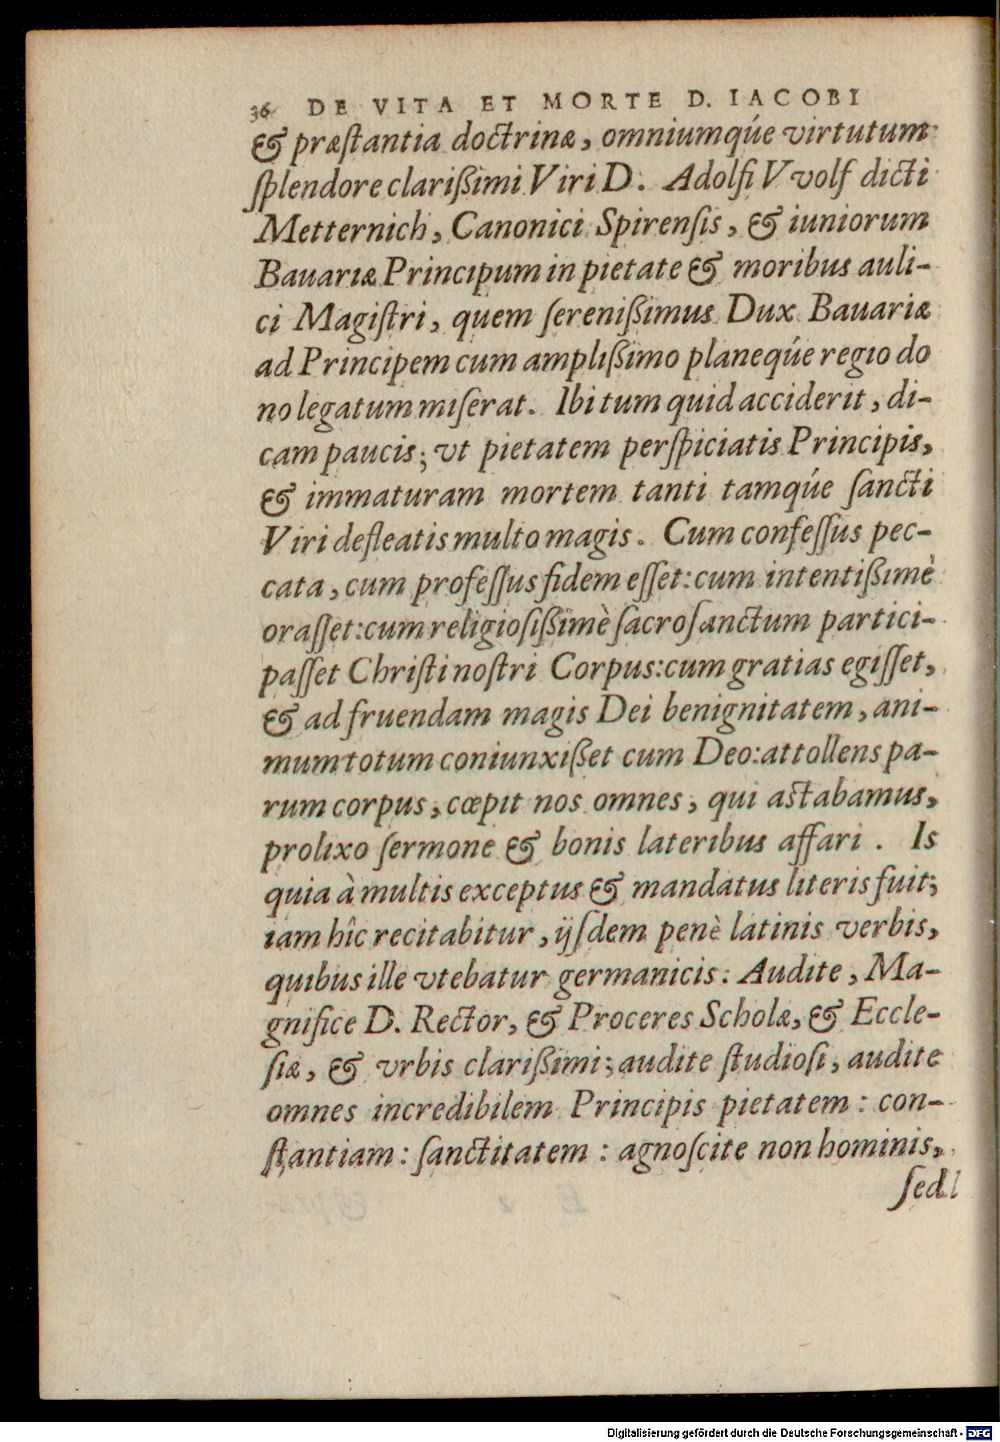 36 DE VITA ET MORTE D. IACOBI
& præſtantia doctrinæ, omniumqúe virtutum
ſplendore clarißimi Viri D. Adolfi Vvolf dicti
Metternich, Canonici Spirenſis, & iuniorum
Bauariæ Principum in pietate & moribus auli-
ci Magiſtri, quem ſerenißimus Dux Bauariæ
ad Principem cum amplißimo planeqúe regio do
no legatum miſerat. Ibi tum quid acciderit, di-
cam paucis; vt pietatem perſpiciatis Principis,
& immaturam mortem tanti tamqúe ſancti
Viri defleatis multo magis. Cum confeſſus pec-
cata, cum profeſſus fidem eſſet: cum intentißimè
oraſſet: cum religioſißimè ſacroſanctum partici-
paſſet Chriſti noſtri Corpus: cum gratias egiſſet,
& ad fruendam magis Dei benignitatem, ani-
mum totum coniunxißet cum Deo: attollens pa-
rum corpus, cœpit nos omnes, qui aſtabamus,
prolixo ſermone & bonis lateribus affari. Is
quia à multis exceptus & mandatus literis fuit;
iam hîc recitabitur, ijſdem penè latinis verbis,
quibus ille vtebatur germanicis. Audite, Ma-
gnifice D. Rector, & Proceres Scholæ, & Eccle-
ſiæ, & vrbis clarißimi; audite ſtudioſi, audite
omnes incredibilem Principis pietatem: con-
ſtantiam: ſanctitatem: agnoſcite non hominis,
ſed
Digitalisierung gefördert durch die Deutsche Forschungsgemeinschaft - DFG